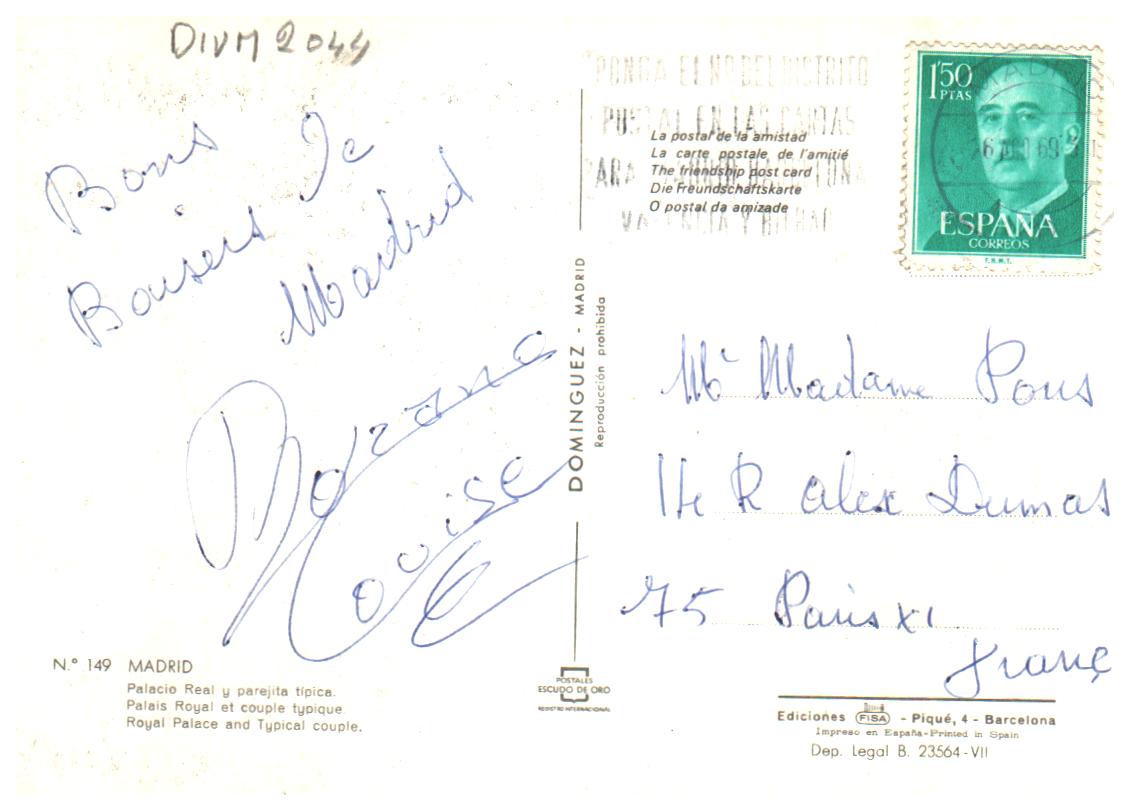 DIVM 2044
Bons
Baisers de
Madrid
Louise
N.º 149 MADRID
Palacio Real y parejita típica.
Palais Royal et couple typique.
Royal Palace and Typical couple.
DOMINGUEZ - MADRID
Reproducción prohibida
POSTALES
ESCUDO DE ORO
REGISTRO INTERNACIONAL
PONGA EL Nº DEL DISTRITO
POSTAL EN LAS CARTAS
PARA MADRID BARCELONA
VALENCIA Y BILBAO
La postal de la amistad
La carte postale de l'amitié
The friendship post card
Die Freundschaftskarte
O postal da amizade
1'50
PTAS
ESPAÑA
CORREOS
F.N.M.T.
Mr Madame Pons
R Alex Dumas
75 Paris XI
Ediciones FISA - Piqué, 4 - Barcelona
Impreso en España-Printed in Spain
Dep. Legal B. 23564-VII